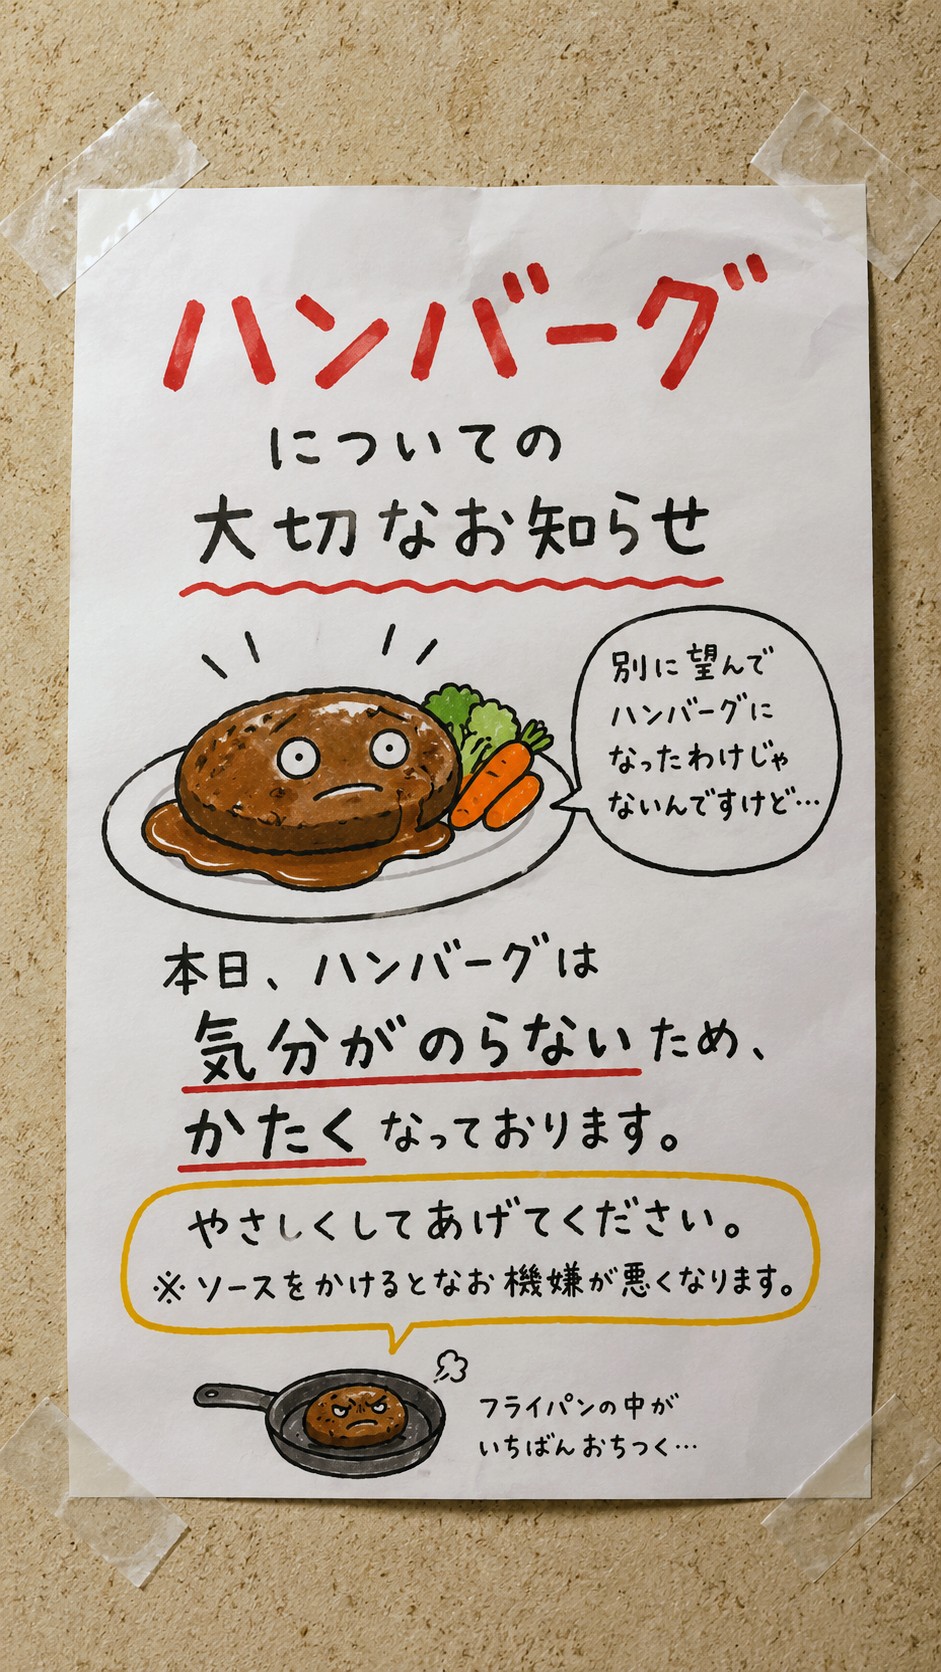 ハンバーグ
についての
大切なお知らせ
別に望んで
ハンバーグに
なったわけじゃ
ないんですけど…
本日、ハンバーグは
気分がのらないため、
かたくなっております。
やさしくしてあげてください。
※ソースをかけるとなお機嫌が悪くなります。
フライパンの中が
いちばんおちつく…